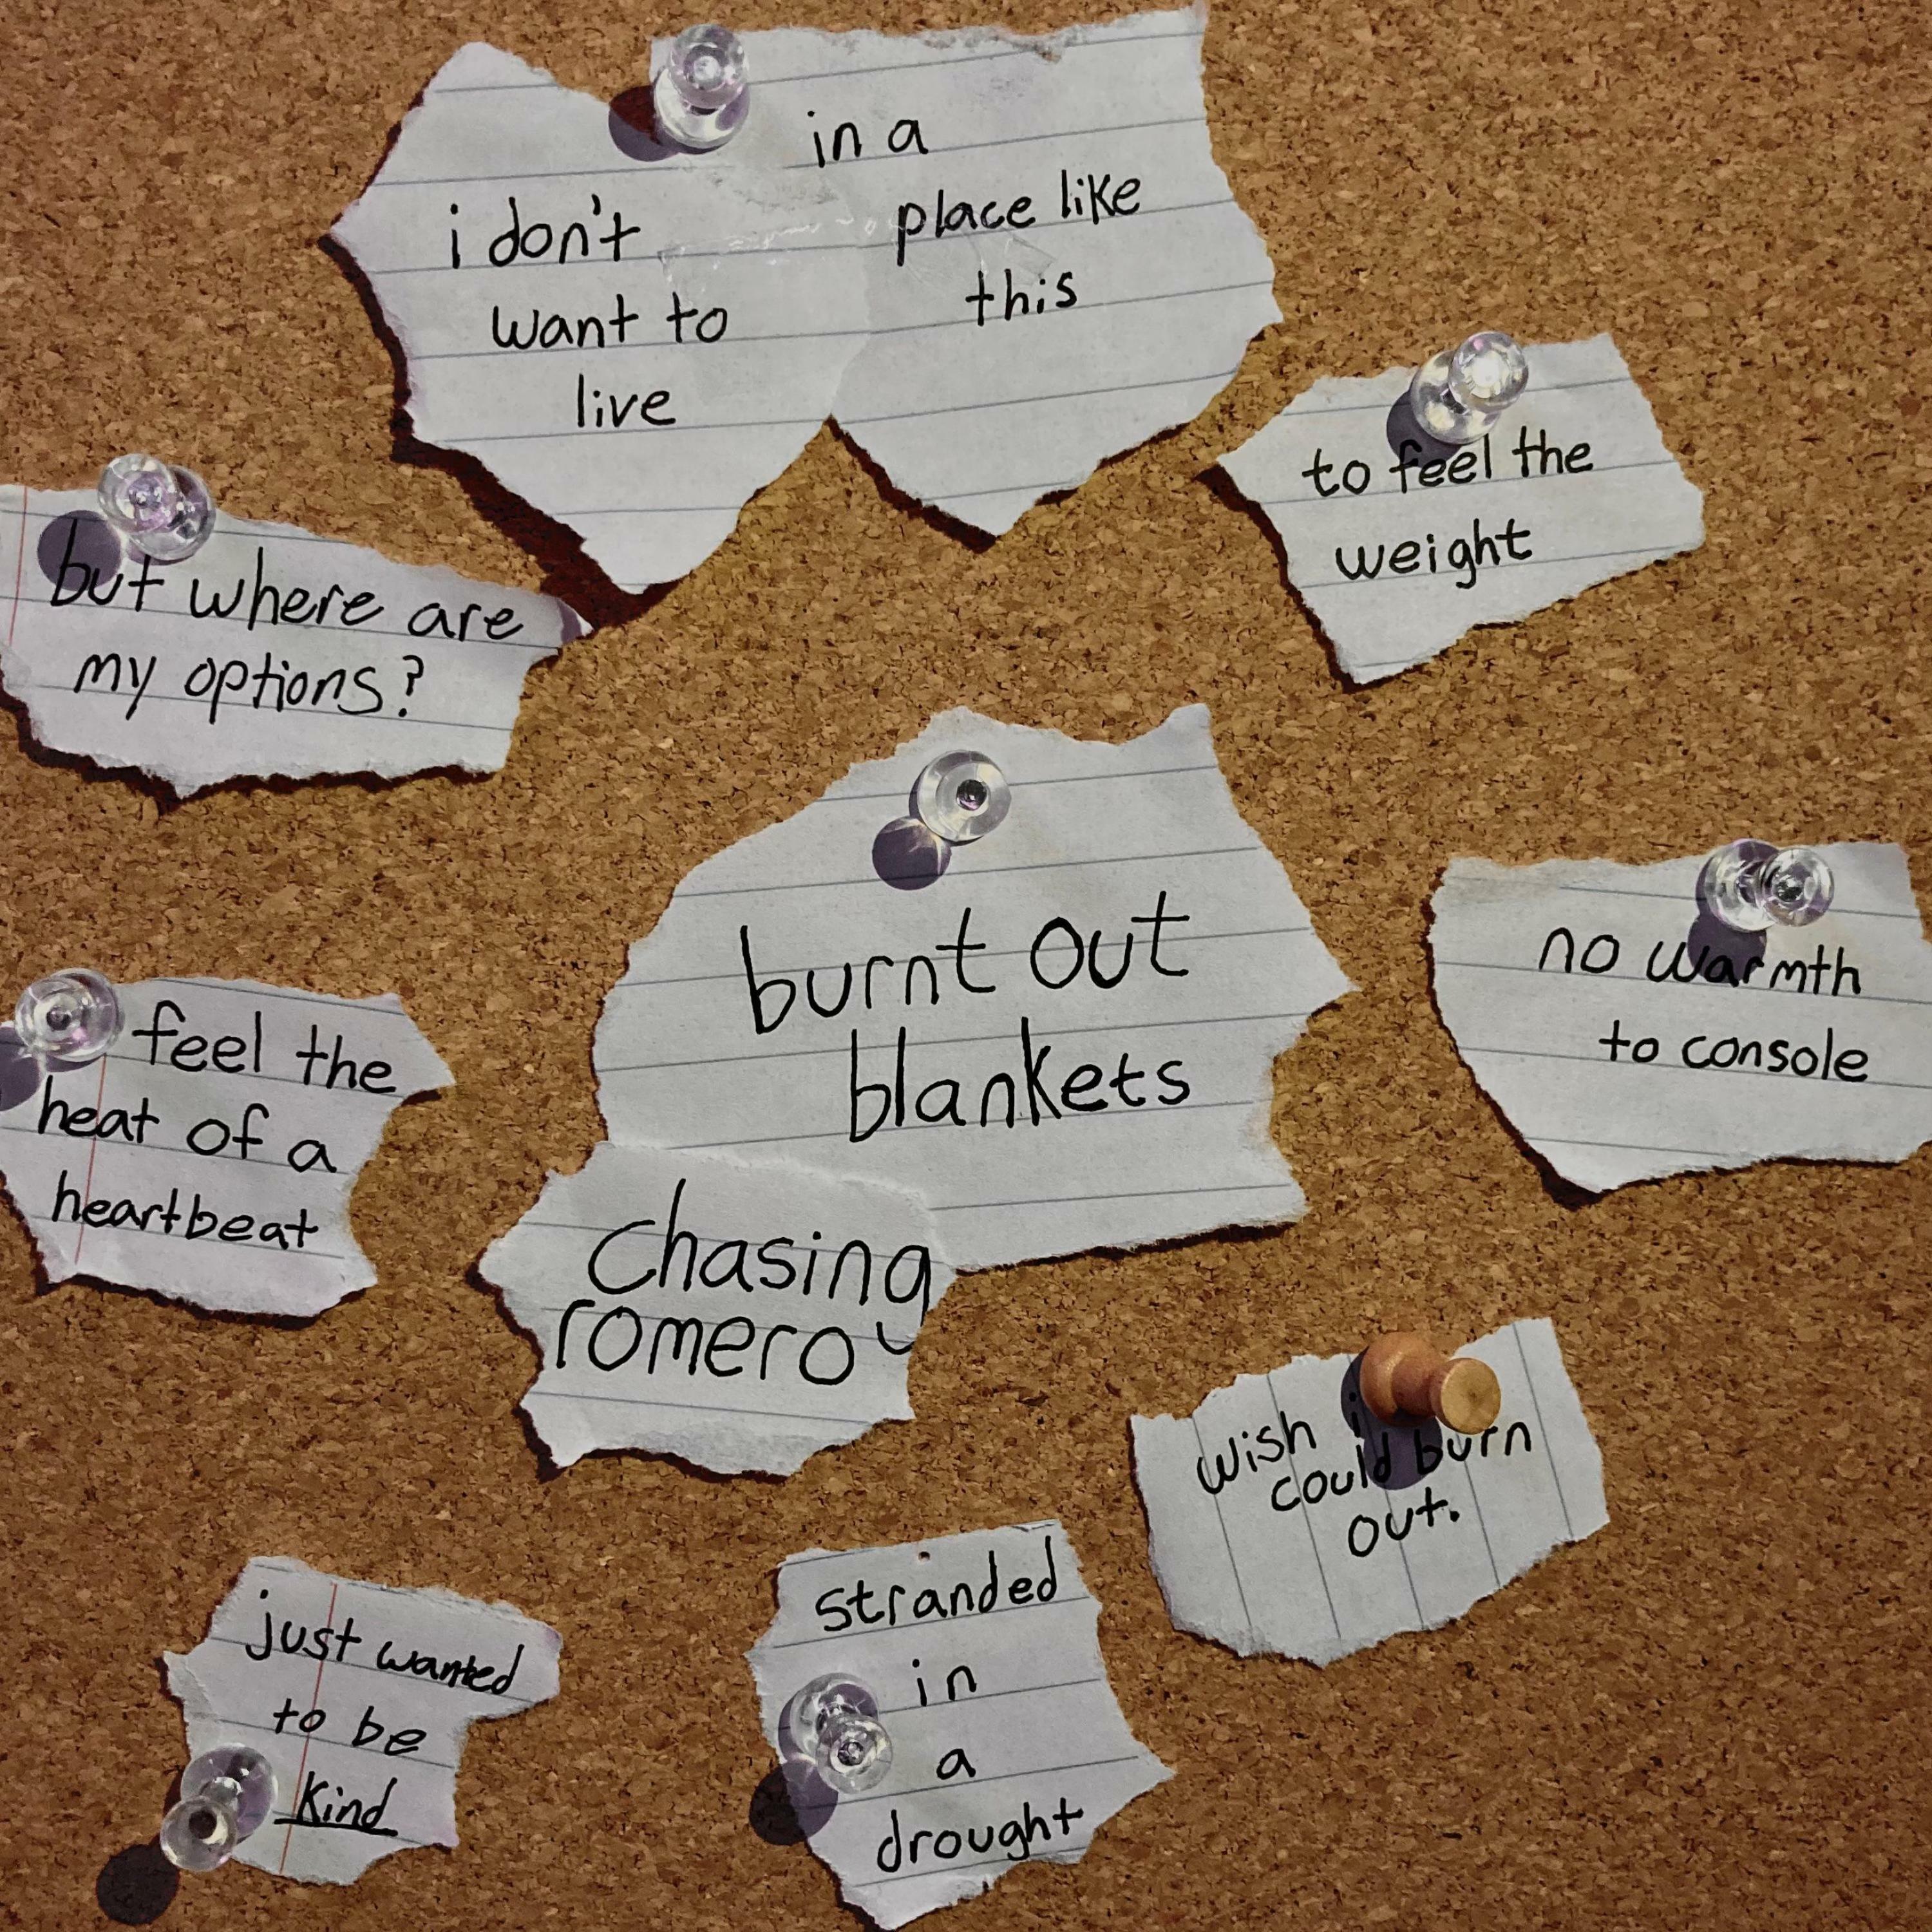 i don't
want to
live
in a
place like
this
to feel the
weight
but where are
my options?
burnt out
blankets
no warmth
to console
feel the
heat of a
heartbeat
chasing
romero
wish i
could burn
out.
just wanted
to be
kind
stranded
in
a
drought